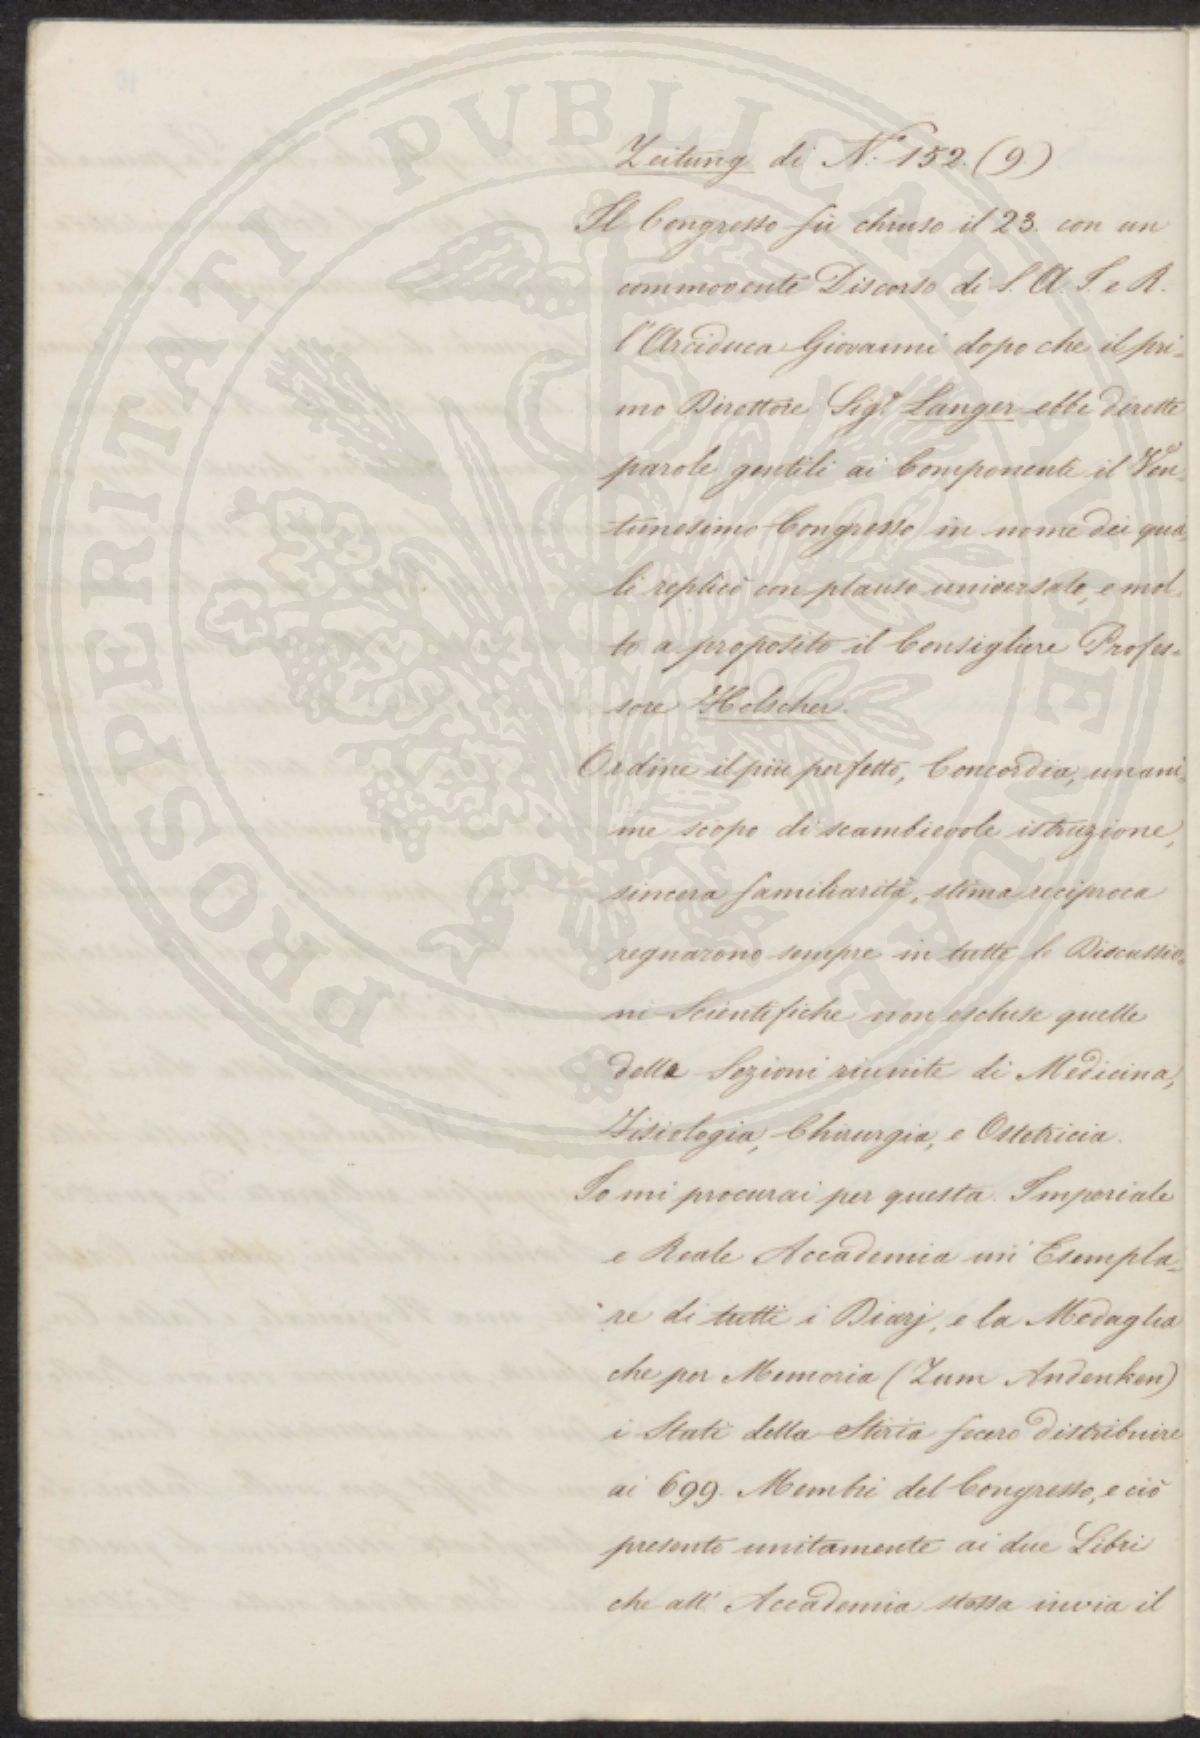 Zeitung di N.° 152. (9.)
Il Congresso fù chiuso il 23. con un
commovente Discorso di S. A. I. e R.
l'Arciduca Giovanni dopo che il pri=
mo Direttore Sig.r Langer ebbe dirette
parole gentili ai Componenti il Ven=
tunesimo Congresso in nome dei qua=
li replicò con plauso universale, e mol=
to a proposito il Consigliere Profes=
sore Holscher.
Ordine il più perfetto, Concordia, unani=
me scopo di scambievole istruzione,
sincera familiarità, stima reciproca
regnarono sempre in tutte le Discussio=
ni Scientifiche non escluse quelle
delle Sezioni riunite di Medicina,
Fisiologia, Chirurgia, e Ostetricia.
Io mi procurai per questa Imperiale
e Reale Accademia un' Esempla=
re di tutti i Diarj, e la Medaglia
che per Memoria (Zum Andenken)
i Stati della Stiria fecero distribuire
ai 699. Membri del Congresso, e ciò
presento unitamente ai due Libri
che all' Accademia stessa invia il
PROSPERITATI PVBLICAE AVGENDAE